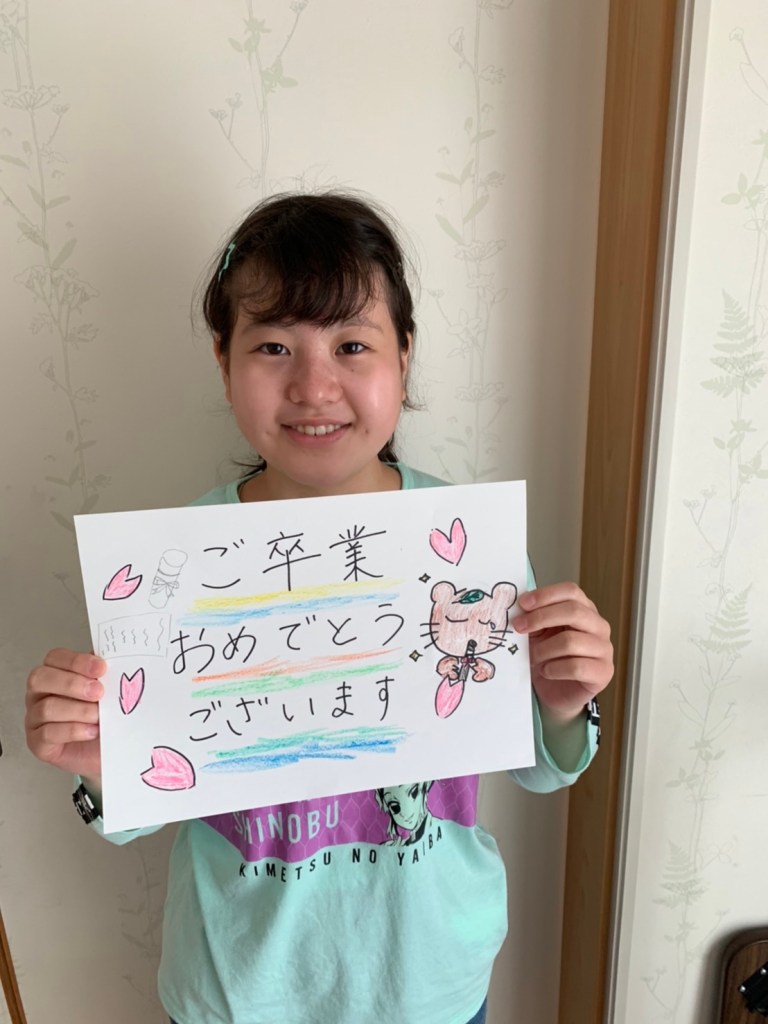 ご卒業
おめでとう
ございます
SHINOBU
KIMETSU NO YAIBA